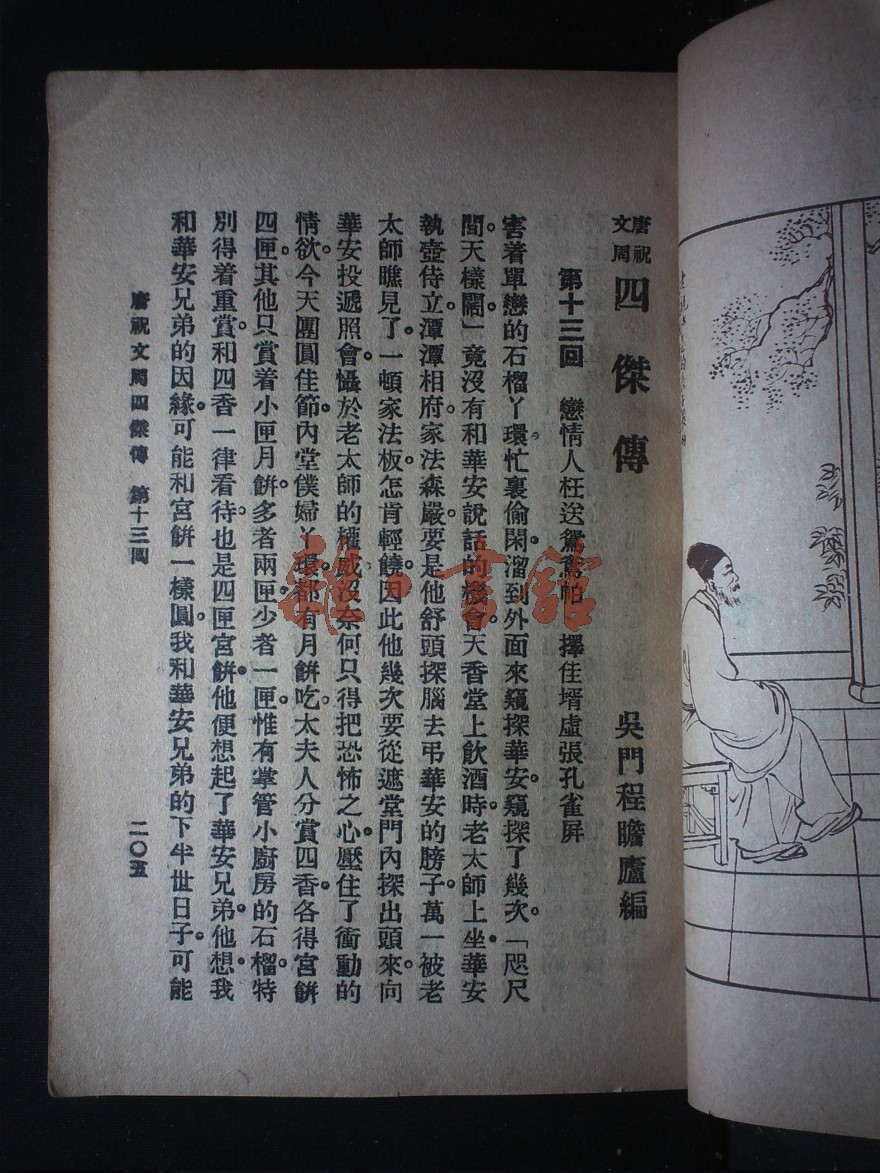 唐祝文周 四傑傳 吳門程瞻廬編
第十三回 戀情人枉送鴛鴦帕 擇佳壻虛張孔雀屏
害着單戀的石榴丫環。忙裏偷閑。溜到外面來窺探華安。窺探了幾次。「咫尺
間。天樣闊」竟沒有和華安說話的機會。天香堂上飲酒時。老太師上坐。華安
執壺侍立。潭潭相府。家法森嚴。要是他舒頭探腦。去弔華安的膀子。萬一被老
太師瞧見了。一頓家法板。怎肯輕饒。因此他幾次要從遮堂門內探出頭來。向
華安投遞照會。懾於老太師的權威。沒奈何只得把恐怖之心。壓住了衝動的
情欲。今天團圓佳節。內堂僕婦丫環。都有月餅吃。太夫人分賞四香。各得宮餅
四匣。其他只賞着小匣月餅。多者兩匣。少者一匣。惟有掌管小廚房的石榴。特
別得着重賞。和四香一律看待。也是四匣宮餅。他便想起了華安兄弟。他想我
和華安兄弟的因緣。可能和宮餅一樣圓。我和華安兄弟的下半世日子。可能
唐祝文周四傑傳 第十三回 二〇五
雜·書館